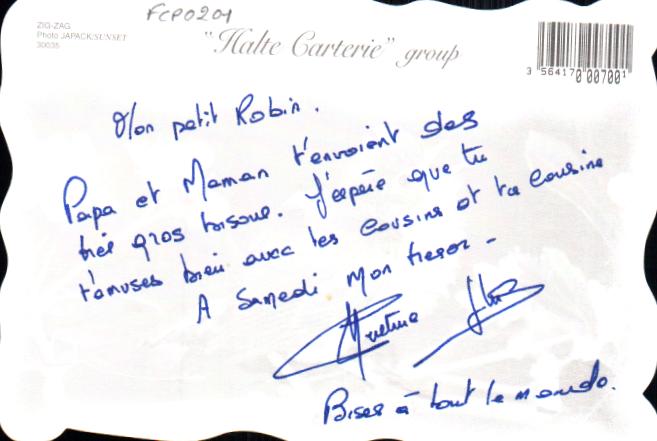 FCP0201
ZIG-ZAG
Photo JAPACK/SUNSET
30035
"Halte Carterie" group
3 564170 007001
Mon petit Robin.
Papa et Maman t'envoient des
très gros bisous. J'espère que tu
t'amuses bien avec tes cousins et ta cousine
A Samedi mon tresor -
Bises à tout le monde.